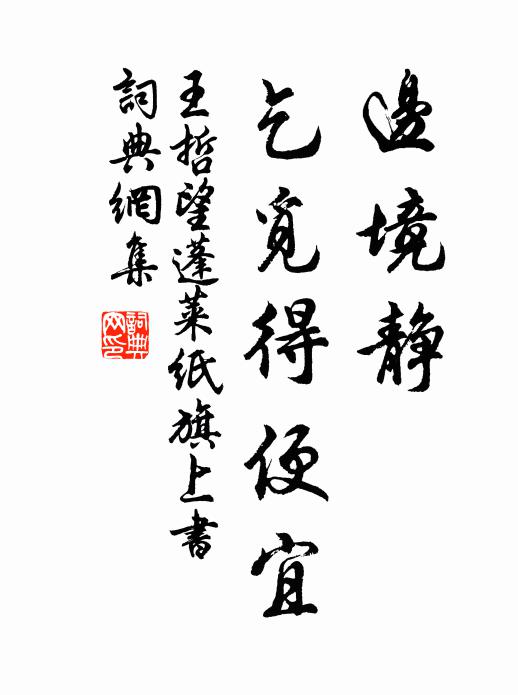 邊境靜
乞覓得便宜
王哲望蓬萊紙旗上書
詞典網集
詞典網印